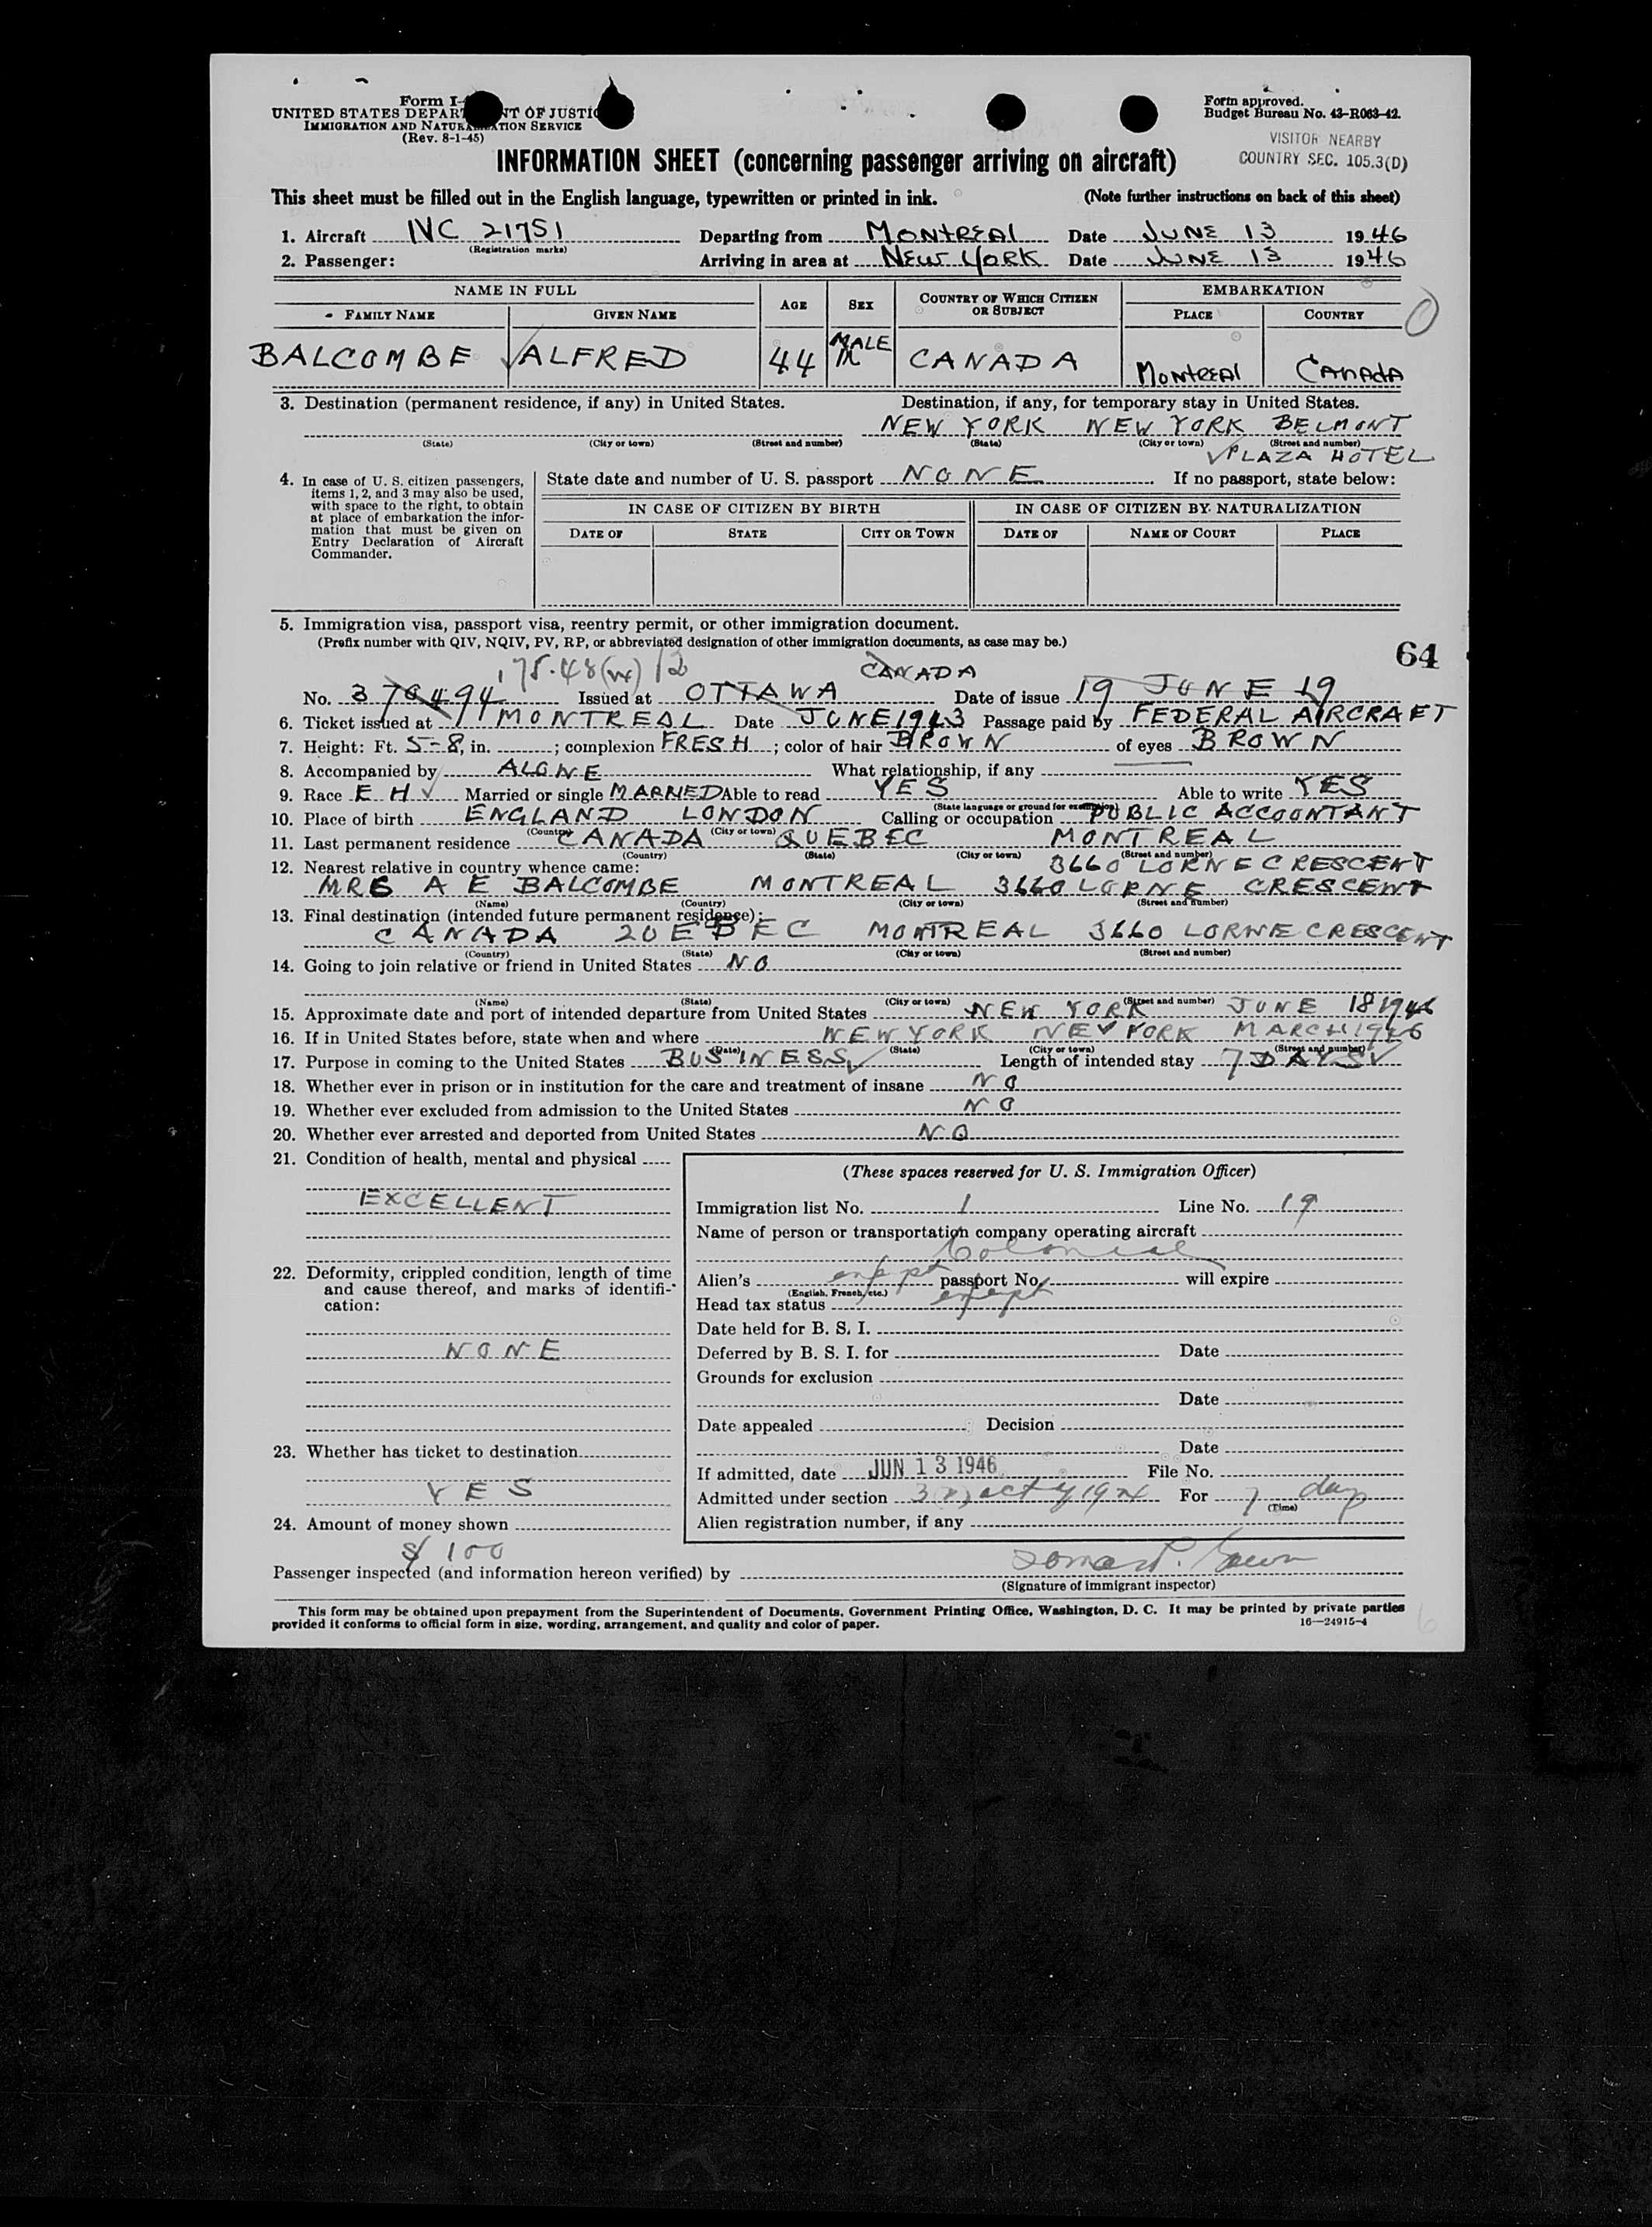 Form I-
UNITED STATES DEPART NT OF JUSTIC
IMMIGRATION AND NATURA ATION SERVICE
(Rev. 8-1-45)
Form approved.
Budget Bureau No. 43-R063-42.
VISITOR NEARBY
COUNTRY SEC. 105.3(D)
INFORMATION SHEET (concerning passenger arriving on aircraft)
This sheet must be filled out in the English language, typewritten or printed in ink. (Note further instructions on back of this sheet)
1. Aircraft NC 21751 Departing from MONTREAL Date JUNE 13 1946
(Registration marks)
2. Passenger: Arriving in area at NEW YORK Date JUNE 13 1946
NAME IN FULL AGE SEX COUNTRY OF WHICH CITIZEN OR SUBJECT EMBARKATION
FAMILY NAME GIVEN NAME PLACE COUNTRY
BALCOMBE ALFRED 44 MALE M CANADA MONTREAL CANADA
3. Destination (permanent residence, if any) in United States. Destination, if any, for temporary stay in United States.
NEW YORK NEW YORK BELMONT
(State) (City or town) (Street and number) (State) (City or town) (Street and number)
PLAZA HOTEL
4. In case of U. S. citizen passengers, items 1, 2, and 3 may also be used, with space to the right, to obtain at place of embarkation the information that must be given on Entry Declaration of Aircraft Commander.
State date and number of U. S. passport NONE If no passport, state below:
IN CASE OF CITIZEN BY BIRTH IN CASE OF CITIZEN BY NATURALIZATION
DATE OF STATE CITY OR TOWN DATE OF NAME OF COURT PLACE
5. Immigration visa, passport visa, reentry permit, or other immigration document.
(Prefix number with QIV, NQIV, PV, RP, or abbreviated designation of other immigration documents, as case may be.)
64
CANADA
No. 370494 Issued at OTTAWA Date of issue 19 JUNE 19
6. Ticket issued at MONTREAL Date JUNE 1943 Passage paid by FEDERAL AIRCRAFT
7. Height: Ft. 5-8, in. ; complexion FRESH ; color of hair BROWN of eyes BROWN
8. Accompanied by ALONE What relationship, if any
9. Race E H Married or single MARRIED Able to read YES Able to write YES
(State language or ground for exemption)
10. Place of birth ENGLAND LONDON Calling or occupation PUBLIC ACCOUNTANT
(Country) (City or town)
11. Last permanent residence CANADA QUEBEC MONTREAL
(Country) (State) (City or town) (Street and number)
12. Nearest relative in country whence came: 3660 LORNE CRESCENT
MRS A E BALCOMBE MONTREAL 3660 LORNE CRESCENT
(Name) (Country) (City or town) (Street and number)
13. Final destination (intended future permanent residence):
CANADA QUEBEC MONTREAL 3660 LORNE CRESCENT
(Country) (State) (City or town) (Street and number)
14. Going to join relative or friend in United States NO
(Name) (State) (City or town) (Street and number)
15. Approximate date and port of intended departure from United States NEW YORK JUNE 18 1946
16. If in United States before, state when and where NEW YORK NEW YORK MARCH 1946
(Date) (State) (City or town) (Street and number)
17. Purpose in coming to the United States BUSINESS Length of intended stay 7 DAYS
18. Whether ever in prison or in institution for the care and treatment of insane NO
19. Whether ever excluded from admission to the United States NO
20. Whether ever arrested and deported from United States NO
21. Condition of health, mental and physical
EXCELLENT
22. Deformity, crippled condition, length of time and cause thereof, and marks of identification:
NONE
23. Whether has ticket to destination
YES
24. Amount of money shown
$100
(These spaces reserved for U. S. Immigration Officer)
Immigration list No. 1 Line No. 19
Name of person or transportation company operating aircraft
Colonial
Alien's exempt passport No. will expire
(English, French, etc.)
Head tax status exempt
Date held for B. S. I.
Deferred by B. S. I. for Date
Grounds for exclusion
Date
Date appealed Decision
Date
If admitted, date JUN 13 1946 File No.
Admitted under section 3 act of 1924 For 7 days
(Time)
Alien registration number, if any
Passenger inspected (and information hereon verified) by
(Signature of immigrant inspector)
This form may be obtained upon prepayment from the Superintendent of Documents, Government Printing Office, Washington, D. C. It may be printed by private parties
provided it conforms to official form in size, wording, arrangement, and quality and color of paper. 16—24915-4